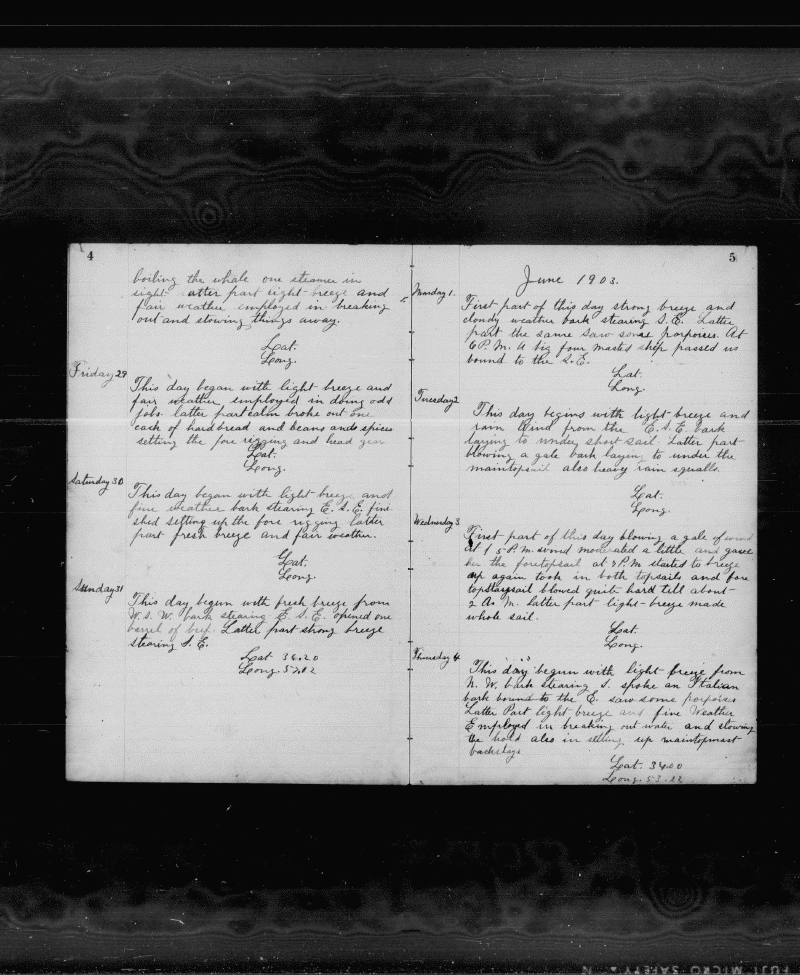 4
boiling the whale one steamer in
sight latter part light breeze and
fair weather employed in breaking
out and stowing things away.
Lat.
Long.
Friday 29
This day began with light breeze and
fair weather, employed in doing odd
jobs. latter part calm broke out one
cask of hardbread and beans and spices
setting the fore rigging and head gear
Lat.
Long.
Saturday 30
This day began with light breeze and
fine weather bark stearing E. S. E. fini-
shed setting up the fore rigging latter
part fresh breeze and fair weather.
Lat.
Long.
Sunday 31
This day begun with fresh breeze from
W. S. W. bark stearing E. S. E. opened one
barrel of beef. Latter part strong breeze
stearing S. E.
Lat. 36.20
Long. 52.02
5
June 1903.
Monday 1.
First part of this day strong breeze and
cloudy weather bark stearing S. E. Latter
part the same saw some porpoises. At
6 P. M. a big four masted ship passed us
bound to the S. E.
Lat.
Long.
Tuesday 2
This day begins with light breeze and
rain wind from the E. S. E. bark
laying to under short sail. Latter part
blowing a gale bark laying to under the
maintopsail also heavy rain squalls.
Lat.
Long.
Wednesday 3
First part of this day blowing a gale of wind
at 5 P. M. wind moderated a little and gave
her the foretopsail at 7 P. M started to breeze
up again took in both topsails and fore
topstaysail blowed quite hard till about
2 A. M. latter part light breeze made
whole sail.
Lat.
Long.
Thursday 4
This day begun with light breeze from
N. W. bark stearing S. spoke an Italian
bark bound to the E. saw some porpoises
Latter Part light breeze and fine Weather
Employed in breaking out water and stowing
the hold also in setting up maintopmast
backstays
Lat. 34.00
Long. 53.22
FUJI MICRO SAFETY N